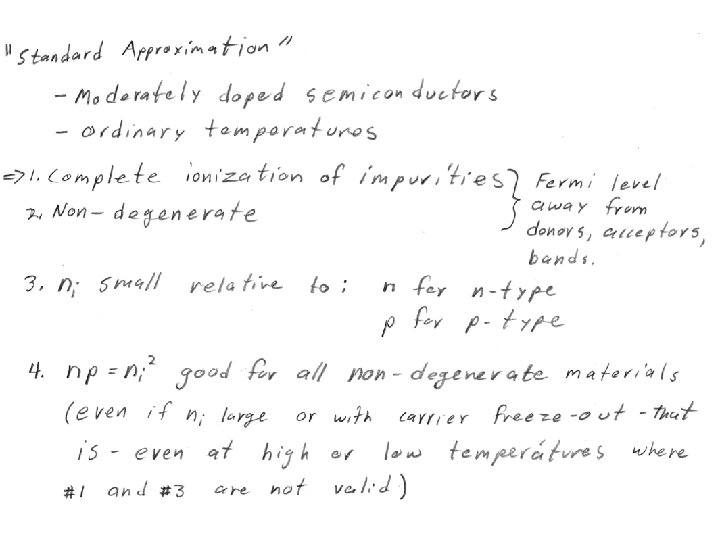 "Standard Approximation"
- Moderately doped semiconductors
- ordinary temperatures
=> 1. Complete ionization of impurities } Fermi level
2. Non-degenerate away from
donors, acceptors,
bands.
3. ni small relative to: n for n-type
p for p-type
4. np = ni² good for all non-degenerate materials
(even if ni large or with carrier freeze-out - that
is - even at high or low temperatures where
#1 and #3 are not valid)